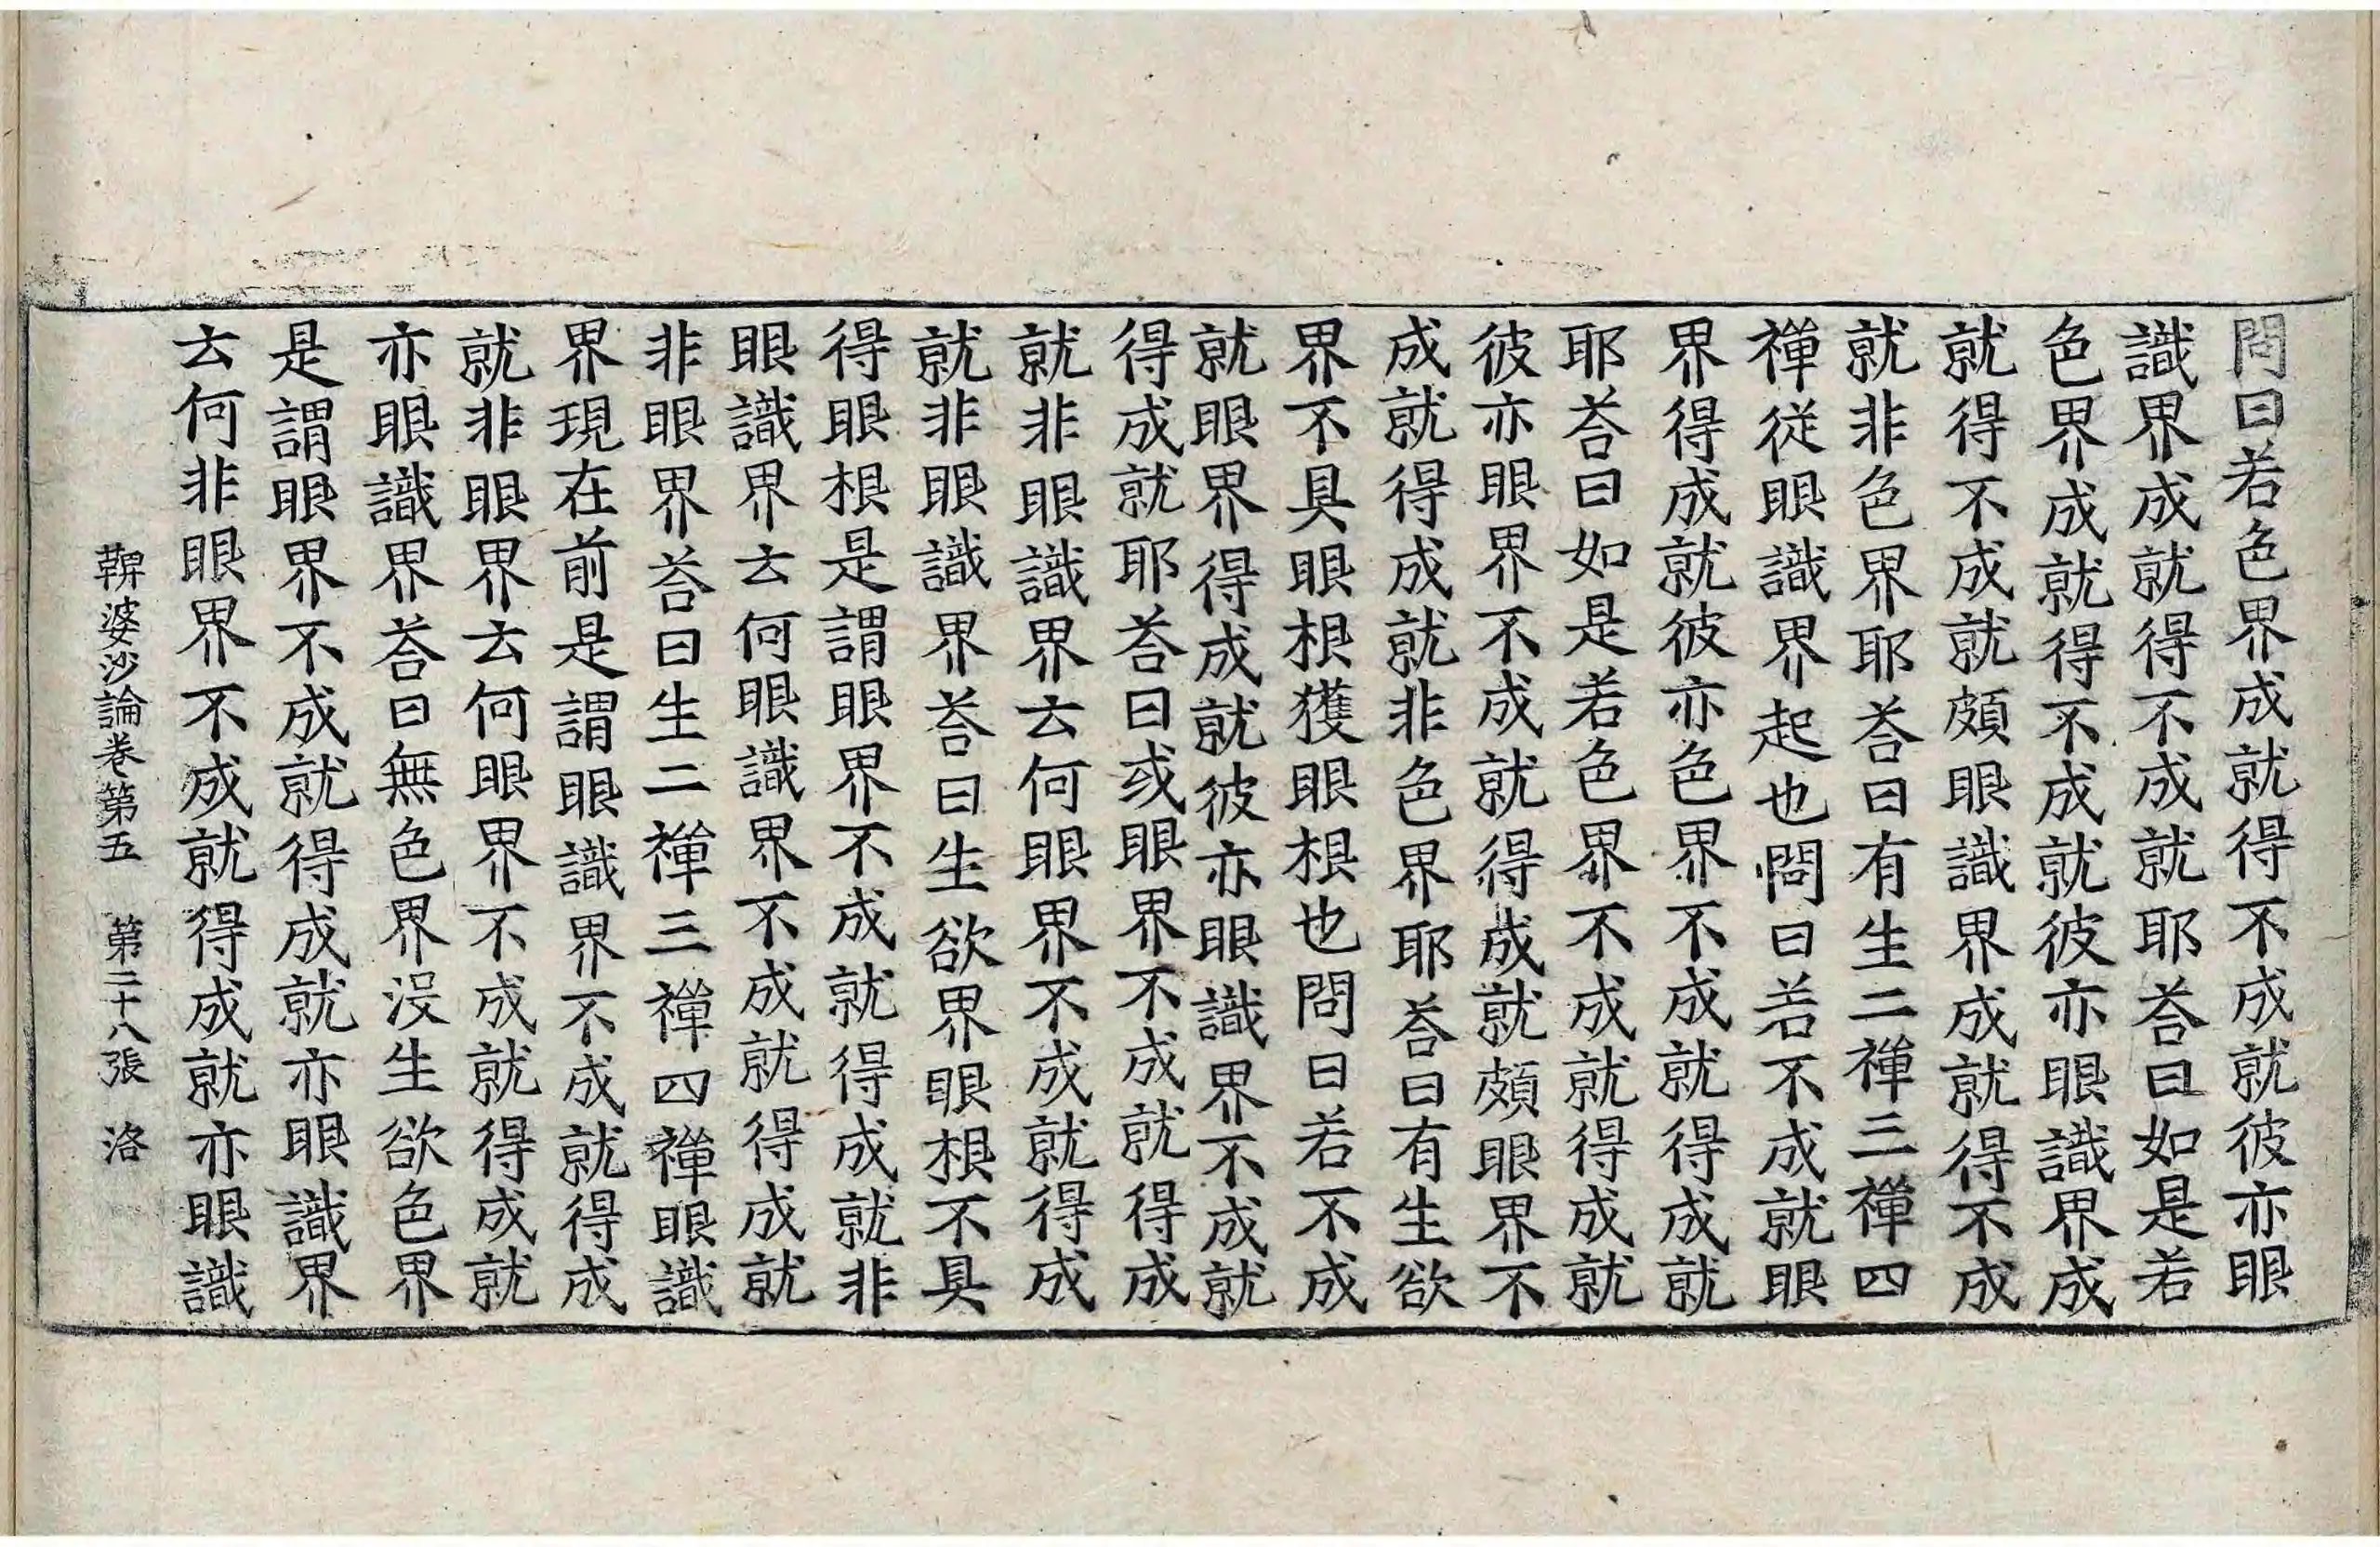 問曰若色界成就得不成就彼亦眼
識界成就得不成就耶荅曰如是若
色界成就得不成就彼亦眼識界成
就得不成就頗眼識界成就得不成
就非色界耶荅曰有生二禪三禪四
禪從眼識界起也問曰若不成就眼
界得成就彼亦色界不成就得成就
耶荅曰如是若色界不成就得成就
彼亦眼界不成就得成就頗眼界不
成就得成就非色界耶荅曰有生欲
界不具眼根獲眼根也問曰若不成
就眼界得成就彼亦眼識界不成就
得成就耶荅曰或眼界不成就得成
就非眼識界去何眼界不成就得成
就非眼識界荅曰生欲界眼根不具
得眼根是謂眼界不成就得成就非
眼識界去何眼識界不成就得成就
非眼界荅曰生二禪三禪四禪眼識
界現在前是謂眼識界不成就得成
就非眼界去何眼界不成就得成就
亦眼識界荅曰無色界沒生欲色界
是謂眼界不成就得成就亦眼識界
去何非眼界不成就得成就亦眼識
鞞婆沙論卷第五　第二十八張　洛